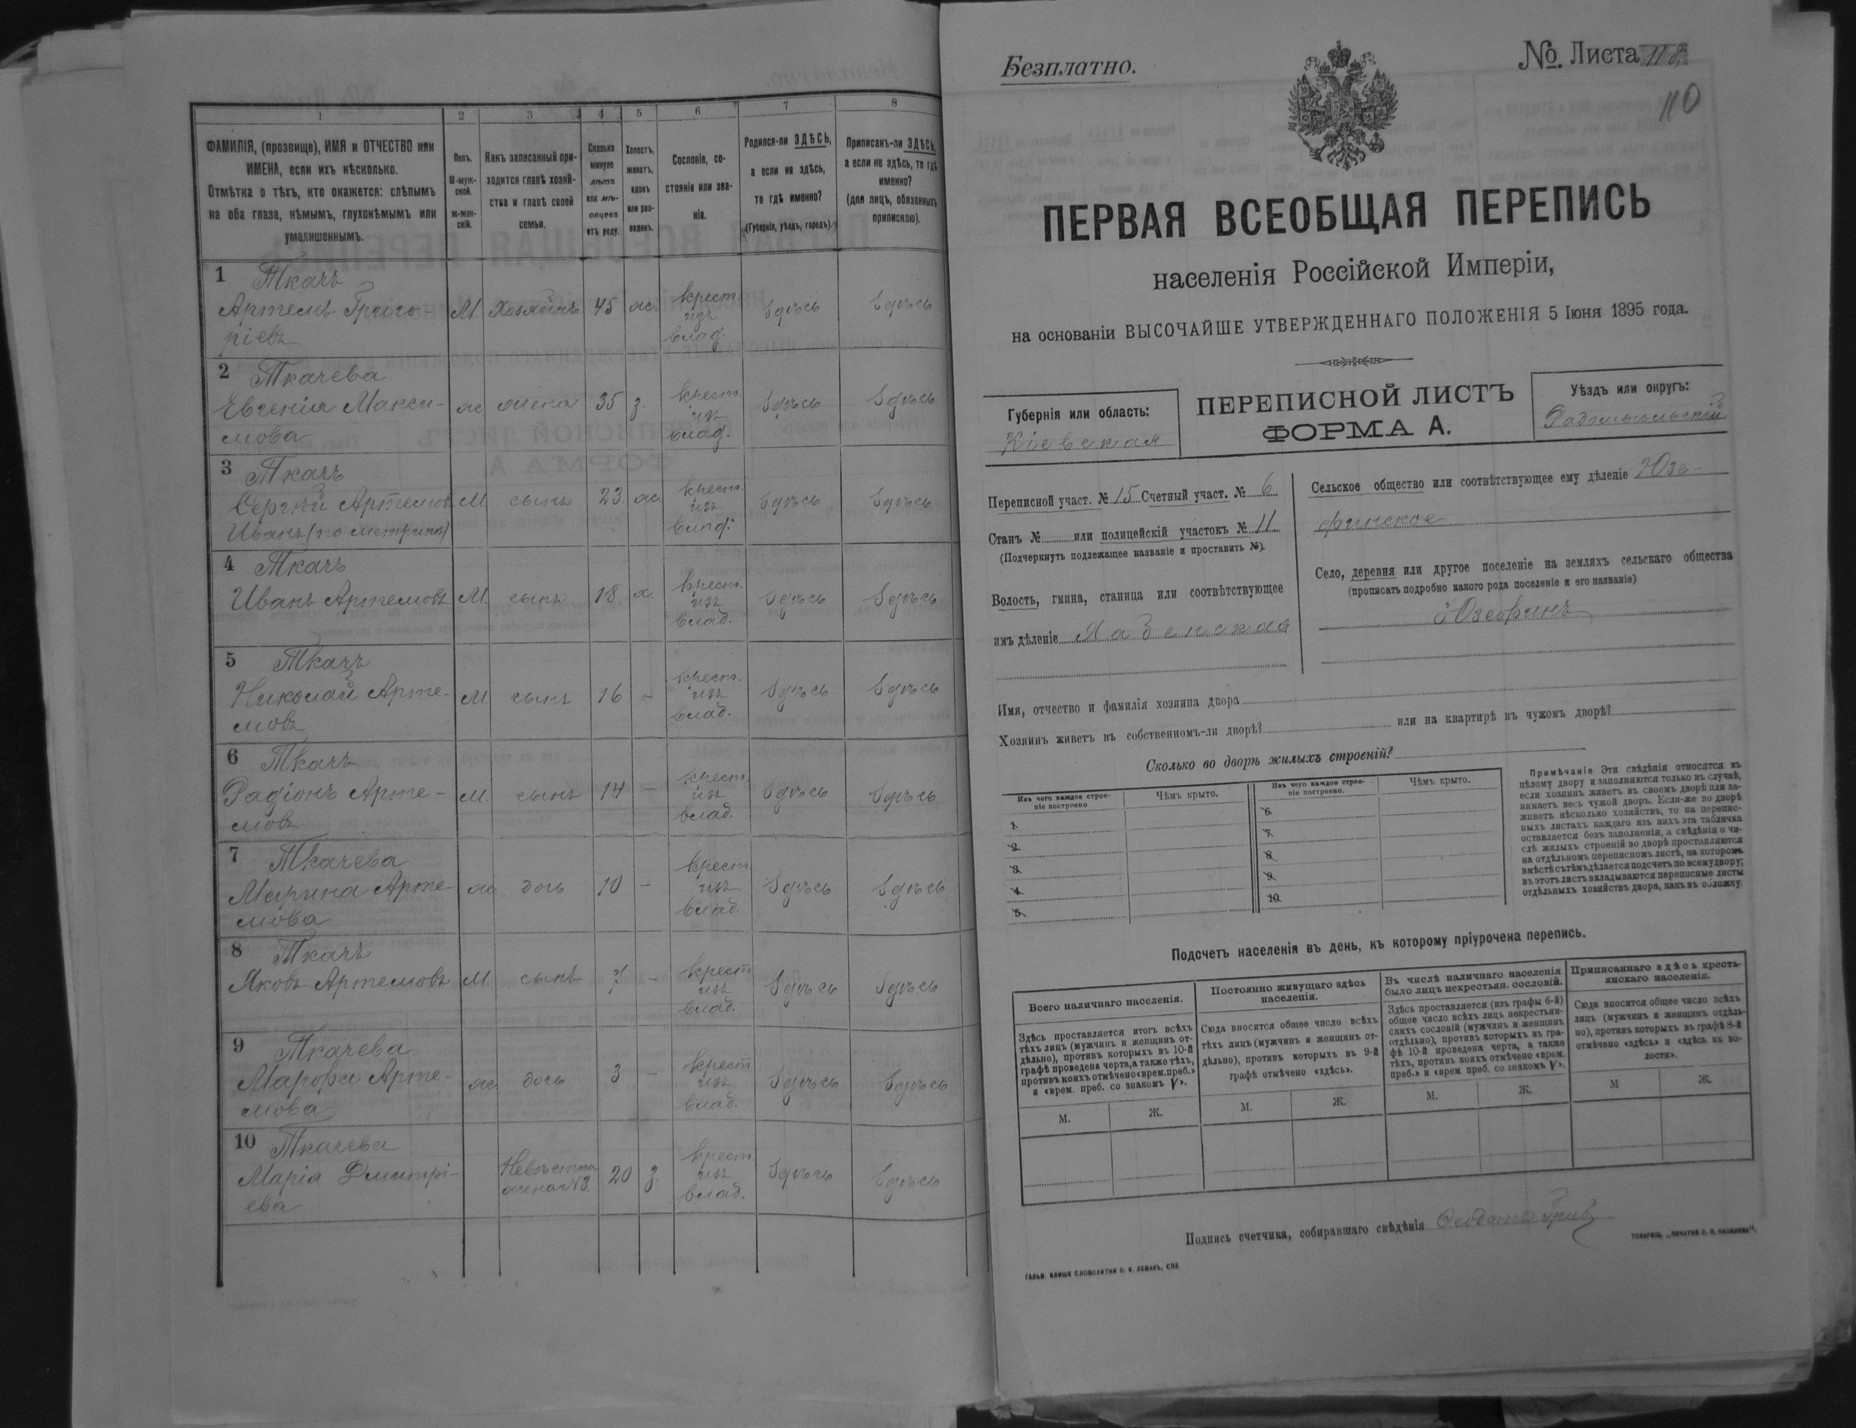 1
2
3
4
5
6
7
8
ФАМИЛІЯ, (прозвище), ИМЯ и ОТЧЕСТВО или
ИМЕНА, если ихъ нѣсколько.
Отмѣтка о тѣхъ, кто окажется: слѣпымъ
на оба глаза, нѣмымъ, глухонѣмымъ или
умалишеннымъ.
Полъ.
М-муж-
ской.
ж-жен-
скій.
Какъ записанный при-
ходится главѣ хозяй-
ства и главѣ своей
семьи.
Сколько
минуло
лѣтъ
или мѣ-
сяцевъ
отъ роду.
Холостъ,
женатъ,
вдовъ
или раз-
веденъ.
Сословіе, со-
стояніе или зва-
ніе.
Родился-ли ЗДѢСЬ,
а если не здѣсь,
то гдѣ именно?
(Губернія, уѣздъ, городъ).
Приписанъ-ли ЗДѢСЬ,
а если не здѣсь, то гдѣ
именно?
(для лицъ, обязанныхъ
припискою).
1 Ткачъ
Артемъ Григо-
ріевъ
М. Хозяинъ 45 ж. крест. изъ влад. Здѣсь Здѣсь
2 Ткачева
Евгенія Макси-
мова
ж жена 35 з. крест. изъ влад. Здѣсь Здѣсь
3 Ткачъ
Сергѣй Артемов
Иванъ (по метрикѣ)
М. сынъ 23 ж. крест. изъ влад. Здѣсь Здѣсь
4 Ткачъ
Иванъ Артемовъ
М. сынъ 18 х. крест. изъ влад. Здѣсь Здѣсь
5 Ткачъ
Николай Арте-
мовъ
М. сынъ 16 - крест. изъ влад. Здѣсь Здѣсь
6 Ткачъ
Радіонъ Арте-
мовъ
М. сынъ 14 - крест. изъ влад. Здѣсь Здѣсь
7 Ткачева
Марина Арте-
мова
ж дочь 10 - крест. изъ влад. Здѣсь Здѣсь
8 Ткачъ
Яковъ Артемовъ
М сынъ 7 - крест. изъ влад. Здѣсь Здѣсь
9 Ткачева
Марфа Арте-
мова
ж. дочь 3 - крест. изъ влад. Здѣсь Здѣсь
10 Ткачева
Марія Дмитрі-
ева
Невѣстка жена №3. 20 з. крест. изъ влад. Здѣсь Здѣсь
Безплатно.
№. Листа 118
110
ПЕРВАЯ ВСЕОБЩАЯ ПЕРЕПИСЬ
населенія Россійской Имперіи,
на основаніи ВЫСОЧАЙШЕ УТВЕРЖДЕННАГО ПОЛОЖЕНІЯ 5 Іюня 1895 года.
Губернія или область:
Кіевская
ПЕРЕПИСНОЙ ЛИСТЪ
ФОРМА А.
Уѣздъ или округъ:
Радомысльскій
Переписной участ. № 15 Счетный участ. № 6
Станъ № или полицейскій участокъ № 11
(Подчеркнуть подлежащее названіе и проставить №).
Волость, гмина, станица или соотвѣтствующее
имъ дѣленіе Хабенская
Сельское общество или соотвѣтствующее ему дѣленіе Юзе-
финское
Село, деревня или другое поселеніе на земляхъ сельскаго общества
(прописать подробно какого рода поселеніе и его названіе)
Юзефинъ
Имя, отчество и фамилія хозяина двора
Хозяинъ живетъ въ собственномъ-ли дворѣ? или на квартирѣ въ чужомъ дворѣ?
Сколько во дворѣ жилыхъ строеній?
Изъ чего каждое строе-
ніе построено
Чѣмъ крыто.
Изъ чего каждое строе-
ніе построено.
Чѣмъ крыто.
1.
2.
3.
4.
5.
6.
7.
8.
9.
10.
Примѣчаніе Эти свѣдѣнія относятся къ
цѣлому двору и заполняются только въ случаѣ,
если хозяинъ живетъ въ своемъ дворѣ или за-
нимаетъ весь чужой дворъ. Если-же во дворѣ
живетъ нѣсколько хозяйствъ, то на перепис-
ныхъ листахъ каждаго изъ нихъ эта табличка
оставляется безъ заполненія, а свѣдѣнія о чи-
слѣ жилыхъ строеній во дворѣ проставляются
на отдѣльномъ переписномъ листѣ, на которомъ
вмѣстѣ съ тѣмъ дѣлается подсчетъ по всему двору;
въ этотъ листъ вкладываются переписные листы
отдѣльныхъ хозяйствъ двора, какъ въ обложку.
Подсчетъ населенія въ день, къ которому пріурочена перепись.
Всего наличнаго населенія.
Здѣсь проставляется итогъ всѣхъ
тѣхъ лицъ (мужчинъ и женщинъ от-
дѣльно), противъ которыхъ въ 10-й
графѣ проведена черта, а также тѣхъ,
противъ коихъ отмѣчено «врем. преб.»
и «врем. преб. со знакомъ V».
М.
Ж.
Постоянно живущаго здѣсь
населенія.
Сюда вносится общее число всѣхъ
тѣхъ лицъ (мужчинъ и женщинъ от-
дѣльно), противъ которыхъ въ 9-й
графѣ отмѣчено «здѣсь».
М.
Ж.
Въ числѣ наличнаго населенія
было лицъ некрестьян. сословій.
Здѣсь проставляется (изъ графы 6-й)
общее число всѣхъ лицъ некрестьян-
скихъ сословій (мужчинъ и женщинъ
отдѣльно), противъ которыхъ въ гра-
фѣ 10-й проведена черта, а также
тѣхъ, противъ коихъ отмѣчено «врем.
преб.» и «врем. преб. со знакомъ V».
М.
Ж.
Приписаннаго здѣсь кресть-
янскаго населенія.
Сюда вносится общее число всѣхъ
лицъ (мужчинъ и женщинъ отдѣль-
но), противъ которыхъ въ графѣ 8-й
отмѣчено «здѣсь» и «здѣсь къ во-
лости».
М
Ж.
Подпись счетчика, собиравшаго свѣдѣнія